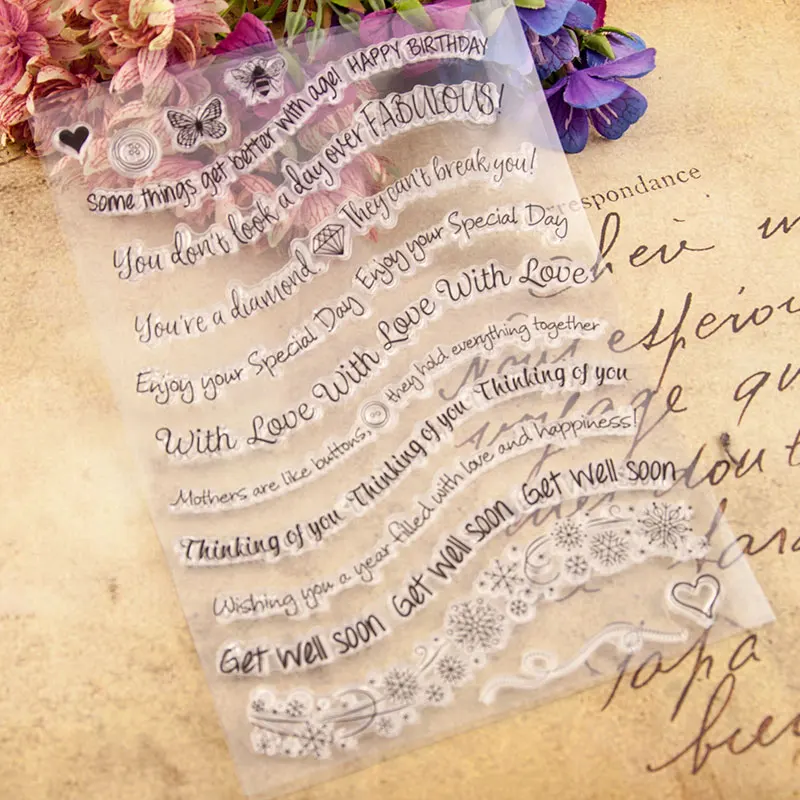 Some things get better with age! HAPPY BIRTHDAY
You don't look a day over FABULOUS!
You're a diamond. They can't break you!
Enjoy your Special Day Enjoy your Special Day
With Love With Love With Love
Mothers are like buttons, they hold everything together
Thinking of you Thinking of you Thinking of you
Wishing you a year filled with love and happiness!
Get Well Soon Get Well Soon Get Well Soon
respondance